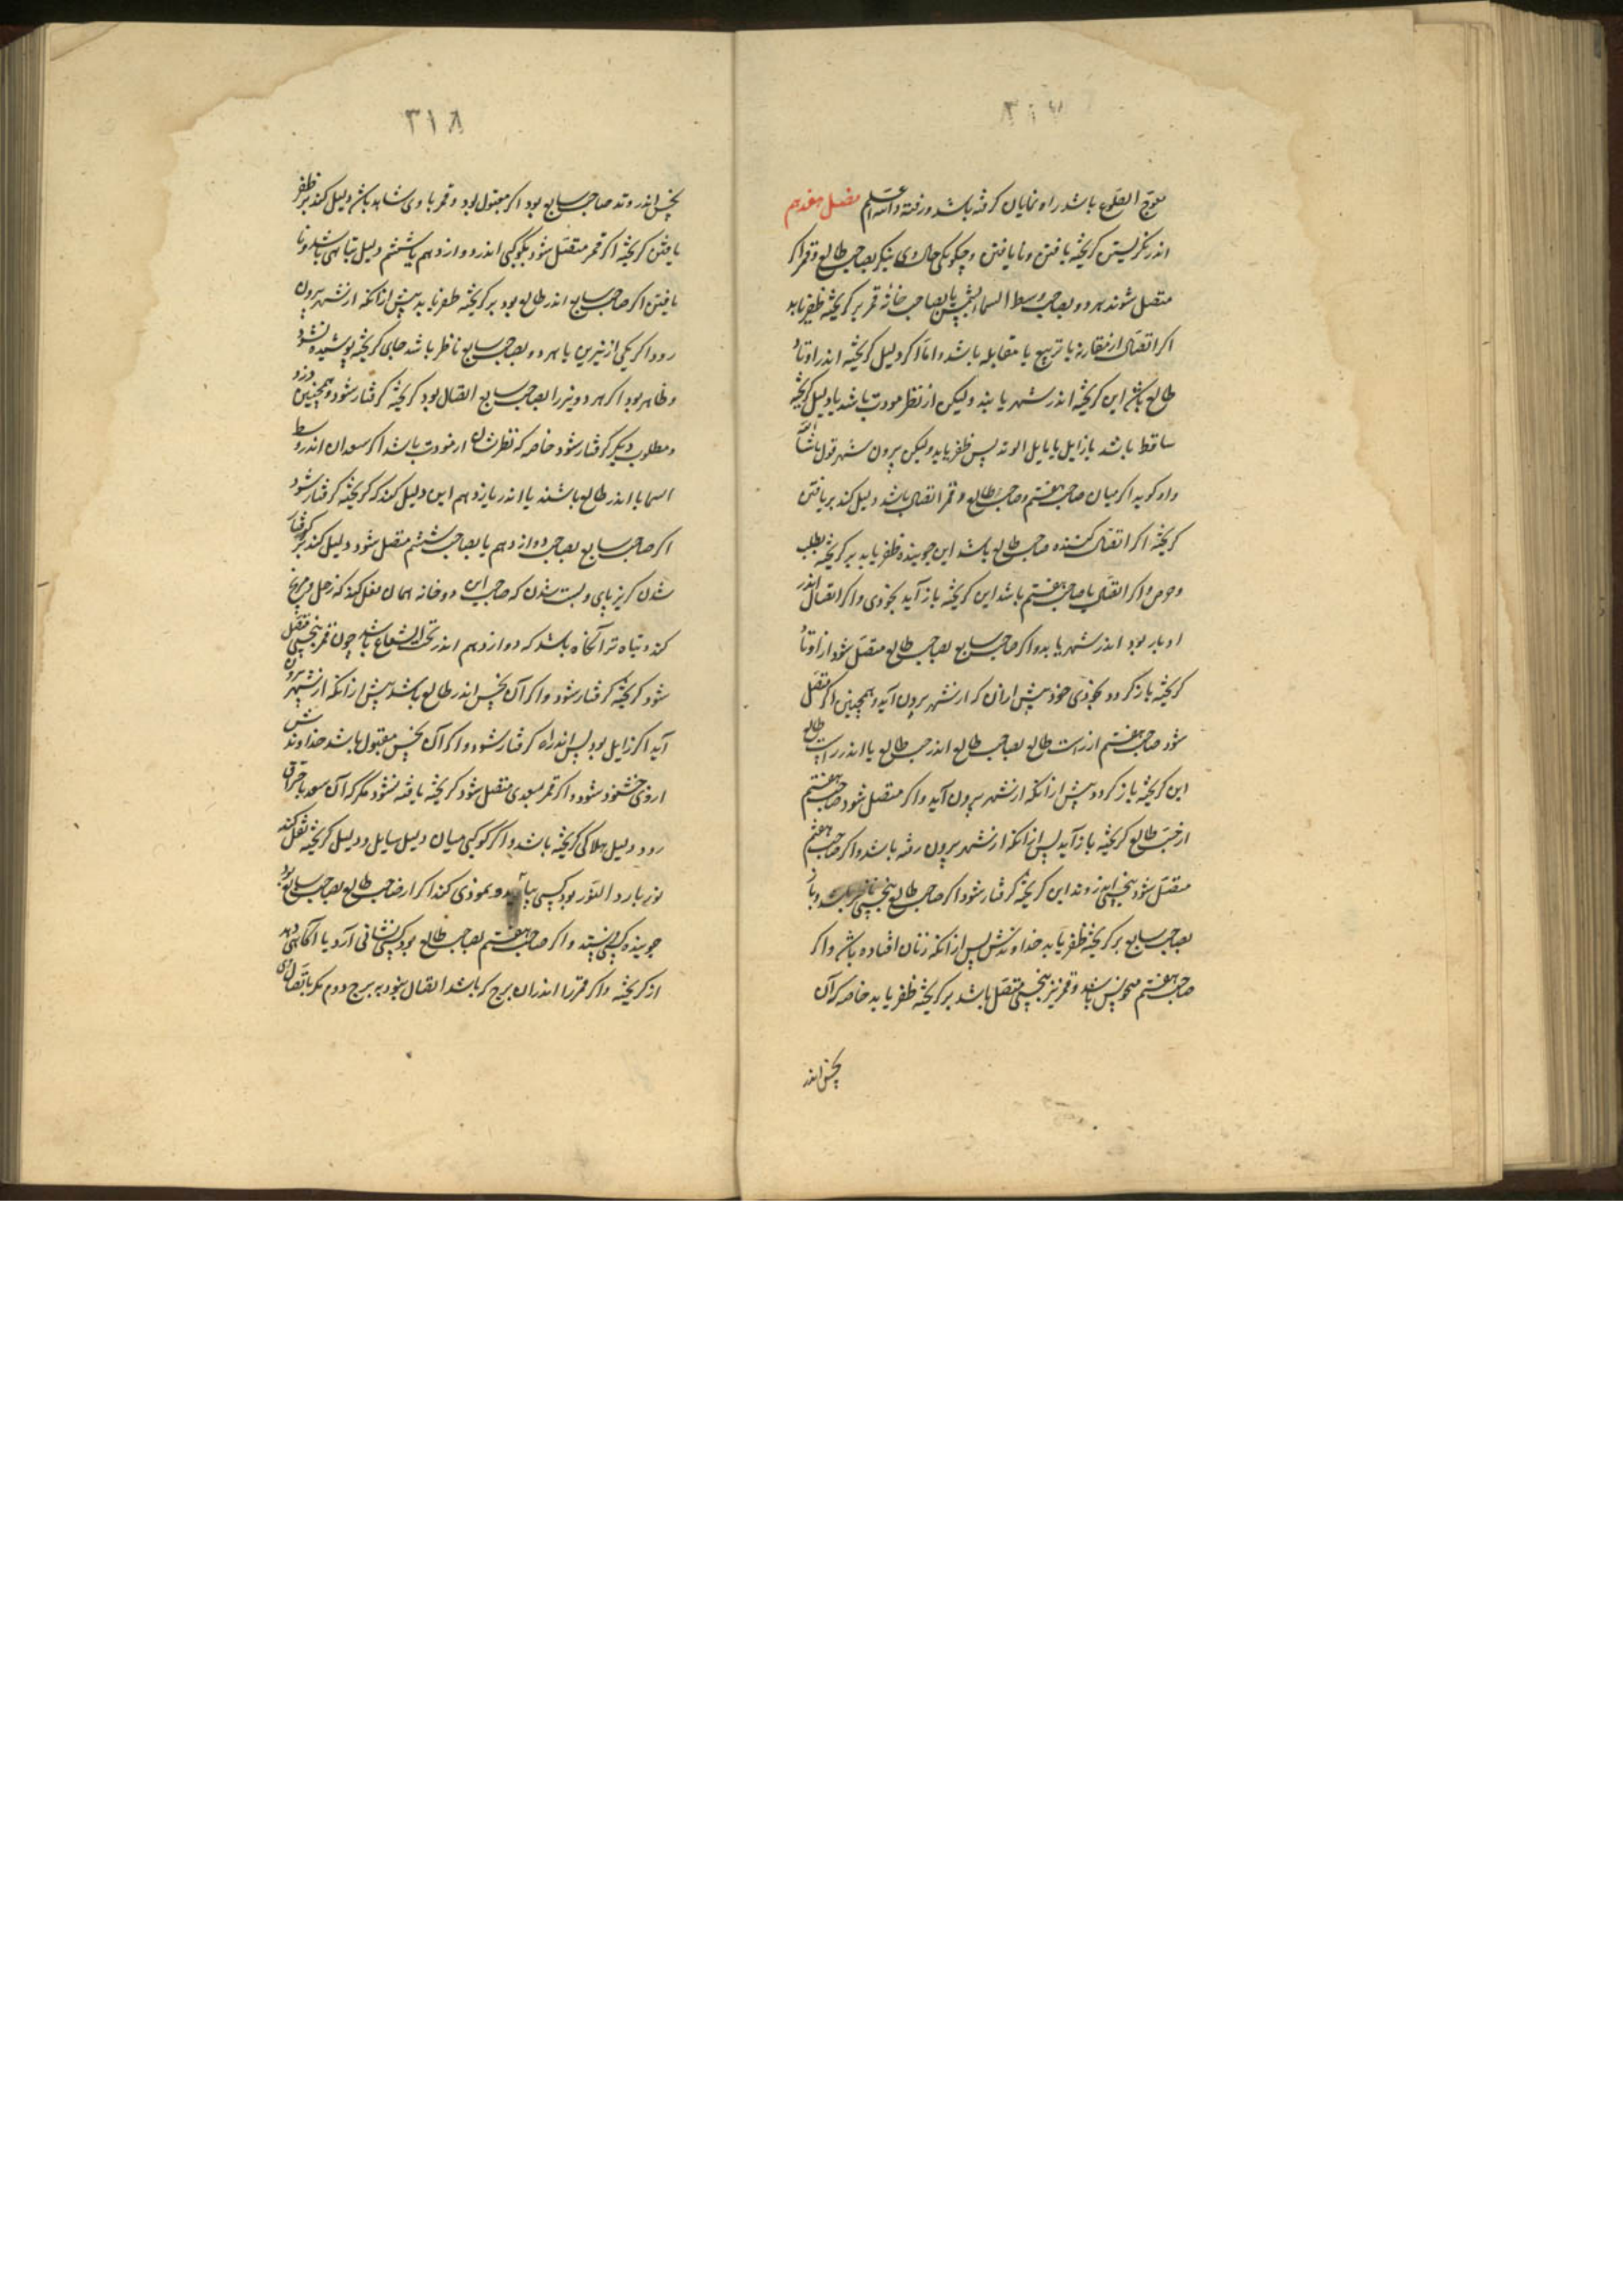 معوج الطلوع باشد راه نمایان گرفته باشد و رفته والله اعلم فصل هفدهم
اندر نگریستن کریخته یافتن و نایافتن و چکونکی حال وی بنکر بصاحب طالع و قمر اکر
متصل شوند هر دو بصاحب وسط السماء یا بصاحب خانهٔ قمر بر کریخته ظفر یابد
اکر اتصال از مقارنه یا تربیع یا مقابله باشد و اما اکر دلیل کریخته اندر اوتاد
طالع باشد این کریخته اندر شهر یابند ولیکن از نظر مودت باشد یا دلیل کریخته
ساقط باشد یا زایل یا مایل الوتد پس ظفر یابد ولیکن بیرون شهر قول ماشاالله
و او کوید اکر میان صاحب هفتم و صاحب طالع و قمر اتصال باشد دلیل کند بر یافتن
کریخته اکر اتصال کننده صاحب طالع باشد این جوینده ظفر یابد بر کریخته بطلب
و حرص و اکر اتصال با صاحب هفتم باشد این کریخته باز آید بخودی و اکر اتصال اندر
ادبار بود اندر شهر یابد و اکر صاحب سابع بصاحب طالع متصل شود از اوتاد
کریخته باز کردد بخودی خود پیش از آن که از شهر بیرون آید و همچنین اکر متصل
شود صاحب هفتم از راست طالع بصاحب طالع اندر چپ طالع یا اندر راست طالع
این کریخته باز کردد پیش از آنکه از شهر بیرون آید و اکر متصل شود صاحب هفتم
از چپ طالع کریخته باز آید پس از آنکه از شهر بیرون رفته باشد و اکر صاحب هفتم
متصل شود بنحسی اندر وتد این کریخته کرفتار شود اکر صاحب طالع بنحسی
بصاحب سابع بر کریخته ظفر یابد خداوندش پس از آنکه زیان افتاده باشد و اکر
صاحب هفتم منحوس باشد و قمر نیز بنحسی متصل باشد بر کریخته ظفر یابد خاصه که آن
نحس اندر
٣١٨
نحس اندر وتد صاحب سابع بود اکر مقبول بود و قمر با وی شاهد باشد دلیل کند بر ظفر
یافتن کریخته اکر قمر متصل شود بکوکبی اندر دوازدهم یا ششم دلیل تباهی باشد و نا
یافتن اکر صاحب سابع اندر طالع بود بر کریخته ظفر یابد پیش از آنکه از شهر بیرون
رود اکر یکی از نیرین یا هر دو بصاحب سابع ناظر باشد جای کریخته پوشیده نشود
و ظاهر بود اکر هر دو نیر را بصاحب سابع اتصال بود کریخته کرفتار شود و همچنین دزد
و مطلوب دیکر کرفتار شود خاصه که نظرشان از مودت باشد اکر سعدان اندر وسط
اسما یا اندر طالع باشند یا اندر یازدهم این دلیل کند که کریخته کرفتار شود
اکر صاحب سابع بصاحب دوازدهم یا بصاحب ششم متصل شود دلیل کند بر کرفتار
شدن کریزپای و بسته شدن که صاحب این دو خانه همان فعل کند که زحل و مریخ
کند و تباه تر آنکاه باشد که دوازدهم اندر تحت الشعاع باشد چون قمر بنحسی متصل
شود کریخته کرفتار شود و اکر آن نحس اندر طالع باشد پیش از آنکه از شهر بیرون
آید اکر زایل بود پس اندر راه کرفتار شود و اکر آن نحس مقبول باشد خداوندش
از وی خشنود شود و اکر قمر بسعدی متصل شود کریخته یافته نشود مکر که آن سعد باحتراق
رود دلیل هلاکی کریخته باشد و اکر کوکبی میان دلیل سایل و دلیل کریخته نقل کند
نور یا رد النور بود کسی بیاید و نموذی کند اکر از صاحب طالع بصاحب سابع بود
جوینده کس فرستد و اکر صاحب هفتم بصاحب طالع بود کسی نشانی آرد یا آکاهی دهد
از کریخته و اکر قمر را اندران برج که باشد اتصال نبود به برج دوم مکر باتصال وی